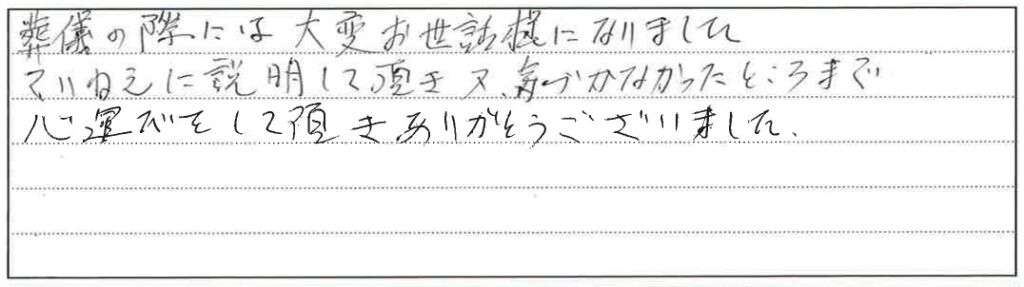 葬儀の際には大変お世話様になりました
ていねえに説明して頂き又、気づかなかったところまで
心運びをして頂きありがとうございました、